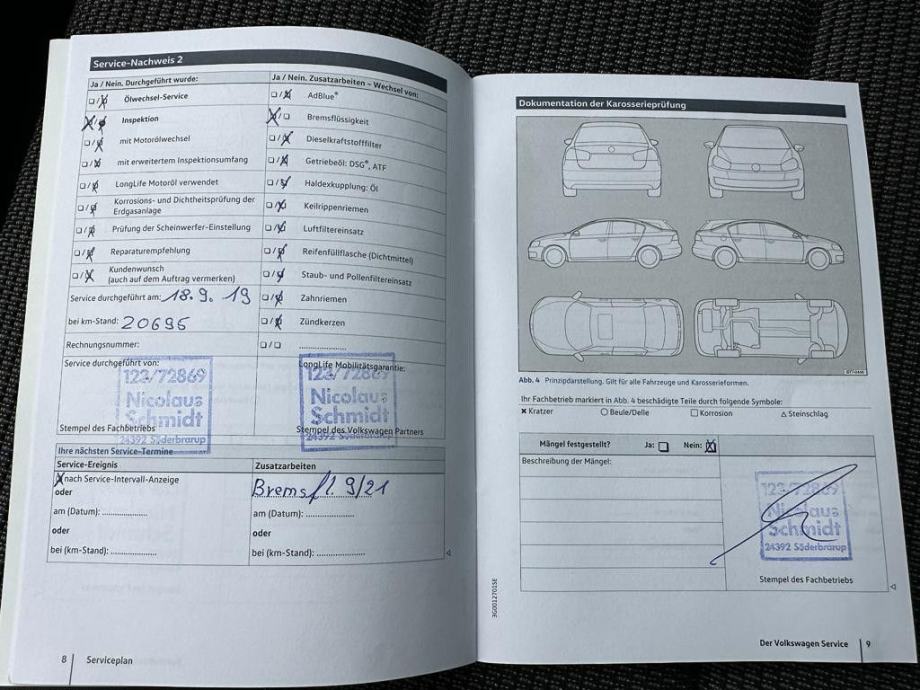 Service-Nachweis 2
Ja / Nein. Durchgeführt wurde:
Ölwechsel-Service
Inspektion
mit Motorölwechsel
mit erweitertem Inspektionsumfang
LongLife Motoröl verwendet
Korrosions- und Dichtheitsprüfung der
Erdgasanlage
Prüfung der Scheinwerfer-Einstellung
Reparaturempfehlung
Kundenwunsch
(auch auf dem Auftrag vermerken)
Service durchgeführt am: 18.9. 19
bei km-Stand: 20695
Rechnungsnummer:
Ja / Nein. Zusatzarbeiten – Wechsel von:
AdBlue®
Bremsflüssigkeit
Dieselkraftstofffilter
Getriebeöl: DSG®, ATF
Haldexkupplung: Öl
Keilrippenriemen
Luftfiltereinsatz
Reifenfüllflasche (Dichtmittel)
Staub- und Pollenfiltereinsatz
Zahnriemen
Zündkerzen
....................
Service durchgeführt von:
123/72869
Nicolaus
Schmidt
24392 Süderbrarup
Stempel des Fachbetriebs
LongLife Mobilitätsgarantie:
123/72869
Nicolaus
Schmidt
24392 Süderbrarup
Stempel des Volkswagen Partners
Ihre nächsten Service-Termine
Service-Ereignis
nach Service-Intervall-Anzeige
oder
am (Datum): ....................
oder
bei (km-Stand): ....................
Zusatzarbeiten
Bremsfl. 9/21
am (Datum): ....................
oder
bei (km-Stand): ....................
8 Serviceplan
Dokumentation der Karosserieprüfung
Abb. 4 Prinzipdarstellung. Gilt für alle Fahrzeuge und Karosserieformen.
Ihr Fachbetrieb markiert in Abb. 4 beschädigte Teile durch folgende Symbole:
Kratzer Beule/Delle Korrosion Steinschlag
Mängel festgestellt? Ja: Nein:
Beschreibung der Mängel:
123/72869
Nicolaus
Schmidt
24392 Süderbrarup
Stempel des Fachbetriebs
3G0012701SE
Der Volkswagen Service 9